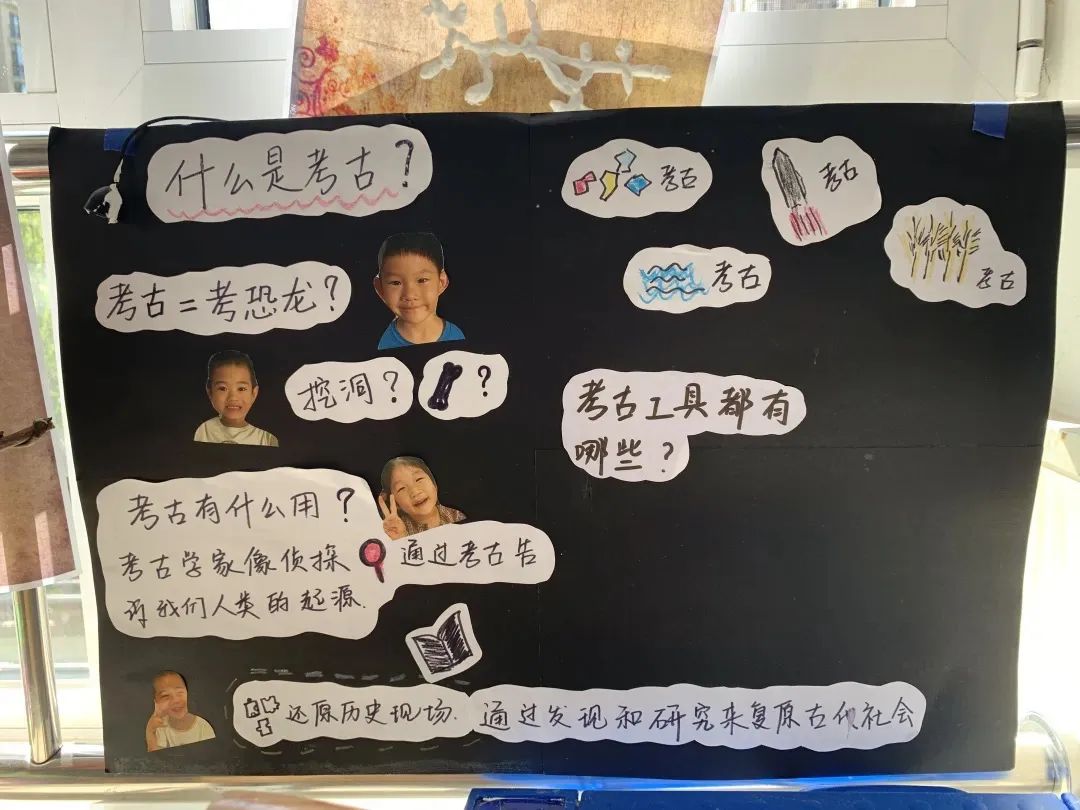 什么是考古？
考古
考古
考古
考古
考古=考恐龙？
挖洞？
？
考古工具都有
哪些？
考古有什么用？
考古学家像侦探 通过考古告
诉我们人类的起源.
还原历史现场. 通过发现和研究来复原古代社会